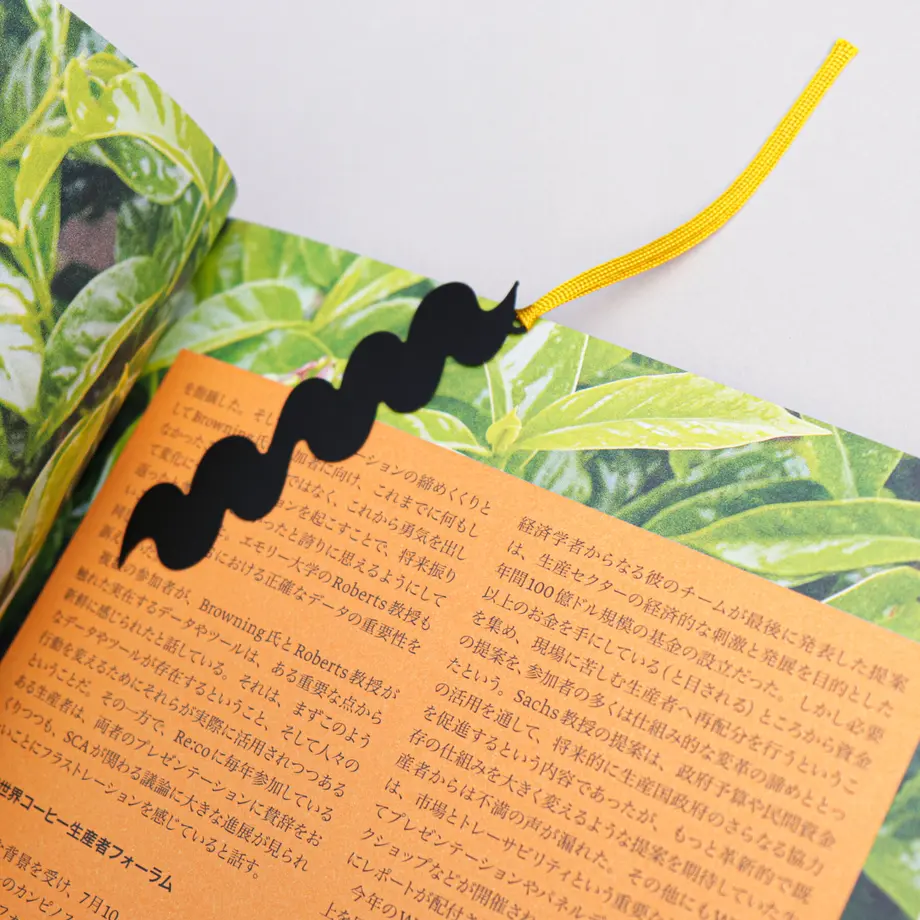 を指摘した。そし
ーションの締めくくりと
してBrowning氏
加者に向け、これまでに何もし
なかった
ではなく、これから勇気を出し
て変化に
ションを起こすことで、将来振り
返った
かったと誇りに思えるようにして
エモリー大学のRoberts教授も
における正確なデータの重要性を
訴え
複数の参加者が、Browning氏とRoberts教授が
触れた実在するデータやツールは、ある重要な点から
新鮮に感じられたと話している。それは、まずこのよう
なデータやツールが存在するということ、そして人々の
行動を変えるためにそれらが実際に活用されつつある
ということだ。その一方で、Re:coに毎年参加している
ある生産者は、両者のプレゼンテーションに賛辞をお
くりつつも、SCAが関わる議論に大きな進展が見られ
いことにフラストレーションを感じていると話す。
世界コーヒー生産者フォーラム
た背景を受け、7月10
のカンピノス
経済学者からなる彼のチームが最後に発表した提案
は、生産セクターの経済的な刺激と発展を目的とした
年間100億ドル規模の基金の設立だった。しかし必要
以上のお金を手にしている(と目される)ところから資金
を集め、現場に苦しむ生産者へ再配分を行うというこ
の提案を、参加者の多くは仕組み的な変革の諦めととっ
たという。Sachs教授の提案は、政府予算や民間資金
の活用を通して、将来的に生産国政府のさらなる協力
を促進するという内容であったが、もっと革新的で既
存の仕組みを大きく変えるような提案を期待していた
産者からは不満の声が漏れた。その他にも
は、市場とトレーサビリティという重要な
てプレゼンテーションやパネルデ
クショップなどが開催され
にレポートが配付さ
今年のW
上を